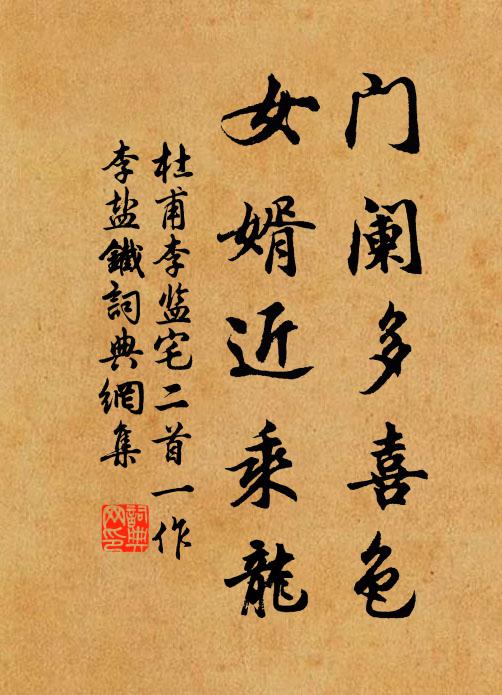 门阑多喜色
女婿近乘龍
杜甫李监宅二首一作
李盐鐵詞典網集
詞典
网印